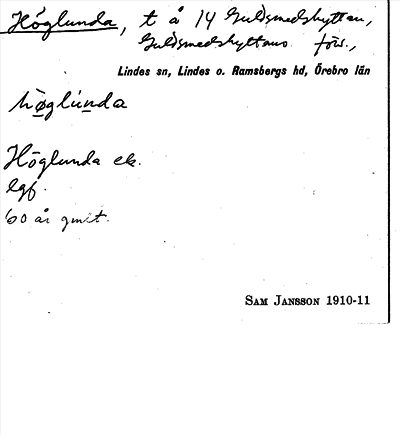 Höglunda, t å 14 Guldsmedshyttan,
Guldsmedshyttans förs.,
Lindes sn, Lindes o. Ramsbergs hd, Örebro län
høglúnda
Höglunda ek.
lgf.
60 år gmlt.
SAM JANSSON 1910-11